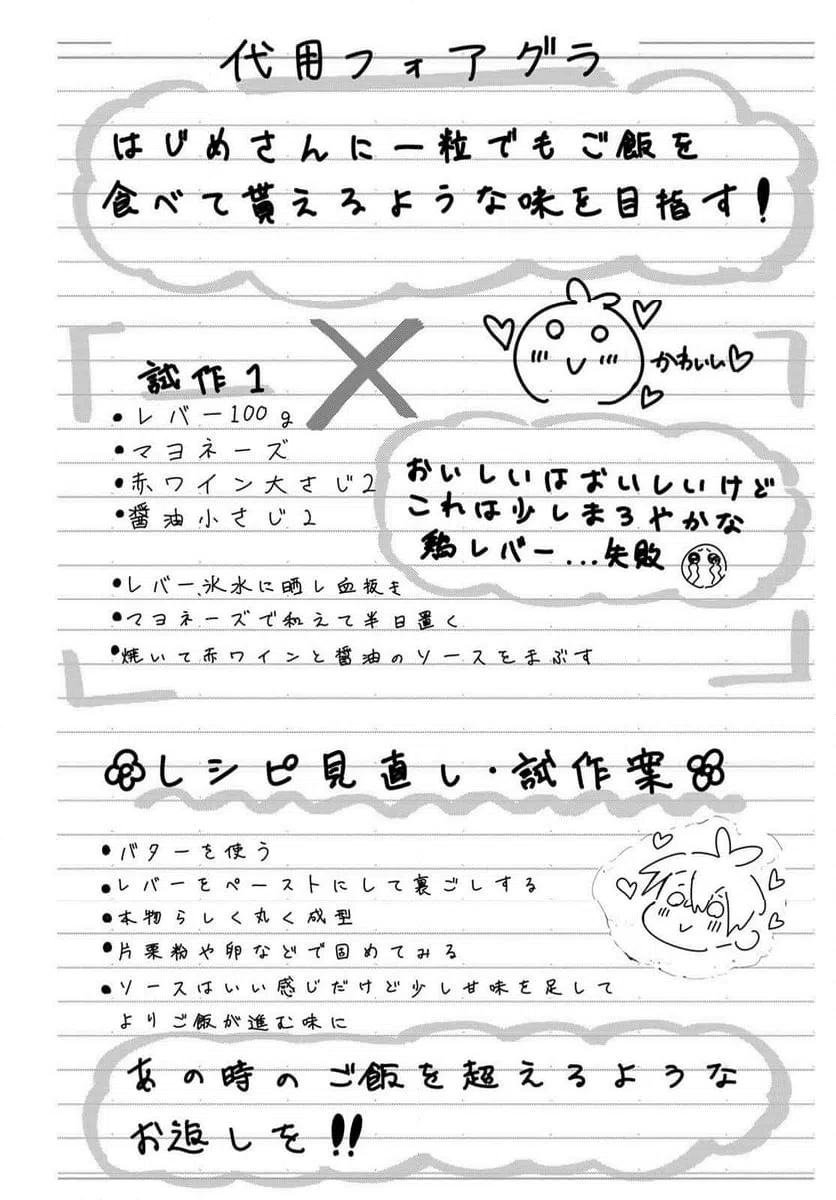 代用フォアグラ
はじめさんに一粒でもご飯を
食べて貰えるような味を目指す!
試作1
かわいい♡
・レバー100g
・マヨネーズ
・赤ワイン大さじ2
・醤油小さじ2
おいしいはおいしいけど
これは少しまろやかな
鶏レバー...失敗
・レバー、氷水に晒し血抜き
・マヨネーズで和えて半日置く
・焼いて赤ワインと醤油のソースをまぶす
レシピ見直し・試作案
・バターを使う
・レバーをペーストにして裏ごしする
・本物らしく丸く成型
・片栗粉や卵などで固めてみる
・ソースはいい感じだけど少し甘味を足して
よりご飯が進む味に
あの時のご飯を超えるような
お返しを!!